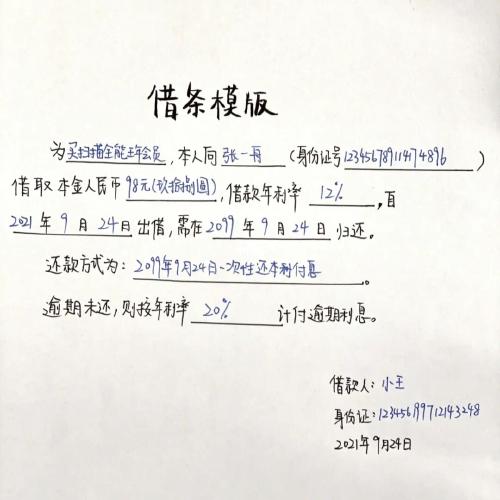 借条模版
为买扫描全能王年会员，本人向张一丹（身份证号12345678911474896）
借取本金人民币98元(玖拾捌圆)，借款年利率12%，自
2021年9月24日出借，需在2099年9月24日归还。
还款方式为：2099年9月24日一次性还本利付息。
逾期未还，则按年利率20%计付逾期利息。
借款人：小王
身份证：12345699712143248
2021年9月24日